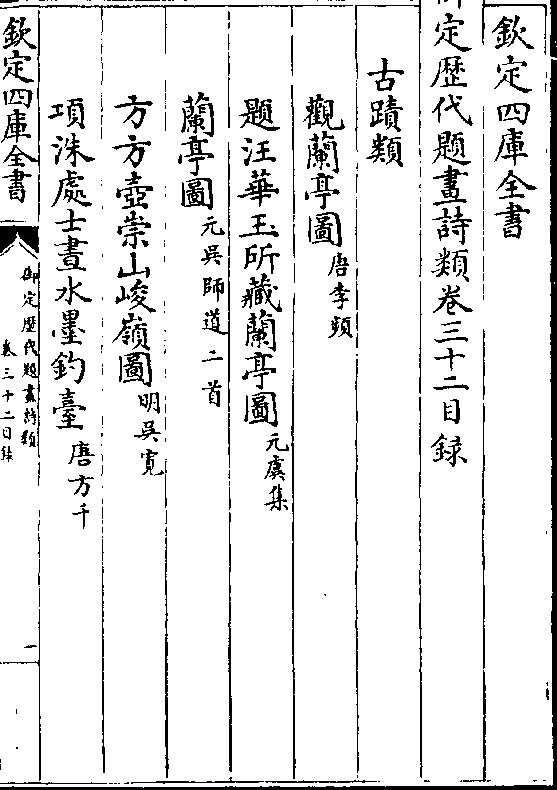 欽定四庫全書
御定歴代題畫詩類卷三十二目録
古蹟類
觀蘭亭圖 唐李頻
題汪華玉所藏蘭亭圖 元虞集
蘭亭圖 元吳師道二首
方方壺崇山峻嶺圖 明吳寛
項洙處士畫水墨釣臺 唐方干
欽定四庫全書
御定歴代題畫詩類
卷三十二目録
一